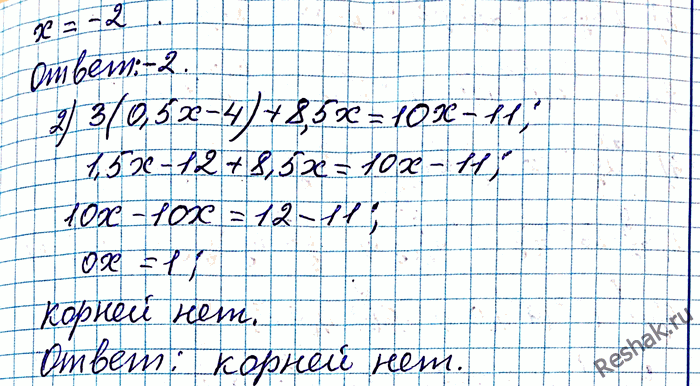 x = -2 .
Ответ: -2.
2) 3(0,5x-4)+8,5x=10x-11;
1,5x-12+8,5x=10x-11;
10x-10x=12-11;
0x=1;
корней нет.
Ответ: корней нет.
Reshak.ru